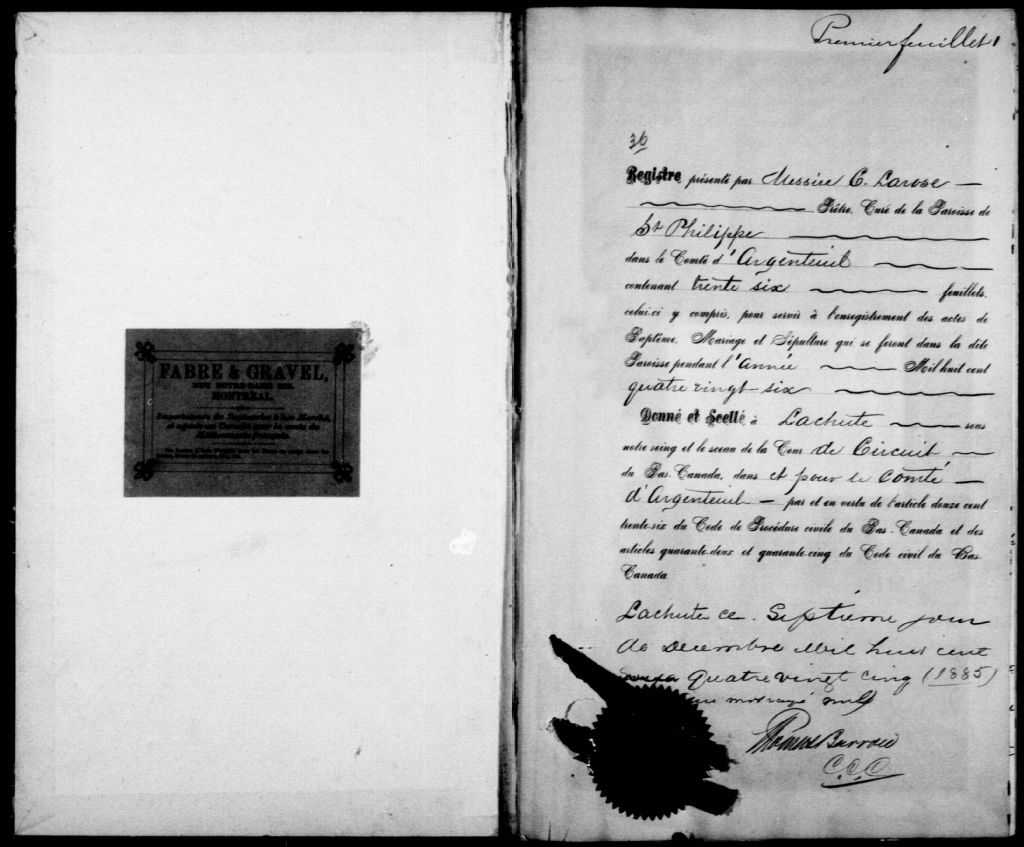 FABRE & GRAVEL,
RUE NOTRE-DAME
MONTREAL.
Premier feuillet
36
Registre présenté par Messire C. Larose
Prêtre, Curé de la Paroisse de
St Philippe
dans le Comté d'Argenteuil
contenant trente six feuillets,
celui-ci y compris, pour servir à l'enregistrement des actes de
Baptême, Mariage et Sépulture qui se feront dans la dite
Paroisse pendant l'Année Mil huit cent
quatre vingt-six
Donné et Scellé à Lachute sous
notre seing et le sceau de la Cour de Circuit
du Bas-Canada, dans et pour le Comté
d'Argenteuil par et en vertu de l'article douze cent
trente-six du Code de Procédure civile du Bas-Canada et des
articles quarante-deux et quarante-cinq du Code civil du Bas
Canada
Lachute ce Septième jour
de Decembre Mil huit cent
quatre vingt cinq (1885)
mot rayé nul
Thomas Barron
C.C.C.